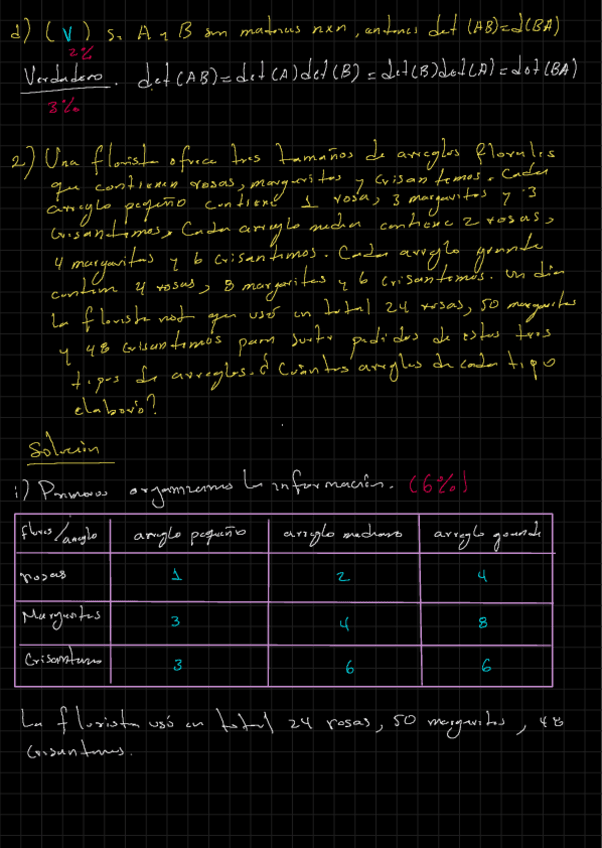 d) ( V ) Si A y B son matrices nxn, entonces det (AB)=d(BA)
2%
Verdadero. det(AB)=det(A)det(B)=det(B)det(A)=det(BA)
3%
2) Una florista ofrece tres tamaños de arreglos florales
que contienen rosas, margaritas y crisantemos. Cada
arreglo pequeño contiene 1 rosa, 3 margaritas y 3
crisantemos, Cada arreglo median contiene 2 rosas,
4 margaritas y 6 crisantemos. Cada arreglo grande
contiene 4 rosas, 8 margaritas y 6 crisantemos. Un día
la florista notó que usó en total 24 rosas, 50 margaritas
y 48 crisantemos para surtir pedidos de estos tres
tipos de arreglos. ¿ Cuántos arreglos de cada tipo
elaboró?
Solución
i) Primero organizamos la información. (6%)
flores/arreglo arreglo pequeño arreglo mediano arreglo grande
rosas 1 2 4
Margaritas 3 4 8
Crisantemo 3 6 6
La florista usó en total 24 rosas, 50 margaritas, 48
crisantemos.